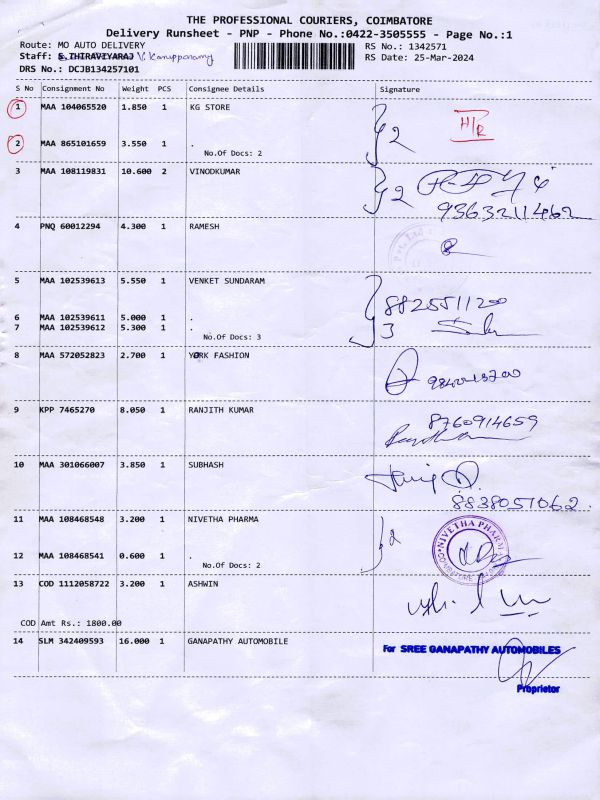 THE PROFESSIONAL COURIERS, COIMBATORE
Delivery Runsheet - PNP - Phone No.:0422-3505555 - Page No.:1
Route: MO AUTO DELIVERY RS No.: 1342571
Staff: S.THIRAVIYARAJ V. Karupponamy RS Date: 25-Mar-2024
DRS No.: DCJB134257101
S No Consignment No Weight PCS Consignee Details Signature
1 MAA 104065520 1.850 1 KG STORE H/R
2 MAA 865101659 3.550 1 . 2
No.Of Docs: 2
3 MAA 108119831 10.600 2 VINODKUMAR 2
9363211462
4 PNQ 60012294 4.300 1 RAMESH
5 MAA 102539613 5.550 1 VENKET SUNDARAM
8825511200
6 MAA 102539611 5.000 1 .
7 MAA 102539612 5.300 1 . 3
No.Of Docs: 3
8 MAA 572052823 2.700 1 YORK FASHION
9 KPP 7465270 8.050 1 RANJITH KUMAR
8760914659
10 MAA 301066007 3.850 1 SUBHASH
8838051062
11 MAA 108468548 3.200 1 NIVETHA PHARMA 2
NIVETHA PHARMA
COIMBATORE
12 MAA 108468541 0.600 1 .
No.Of Docs: 2
13 COD 1112058722 3.200 1 ASHWIN
COD Amt Rs.: 1800.00
14 SLM 342409593 16.000 1 GANAPATHY AUTOMOBILE
For SREE GANAPATHY AUTOMOBILES
Proprietor